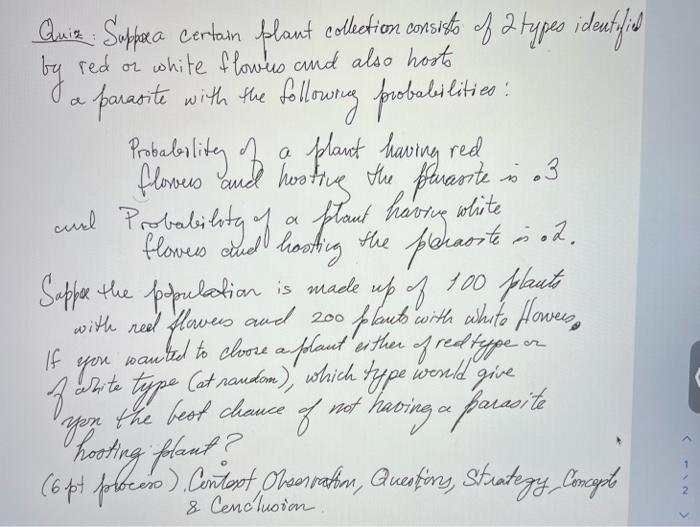 Quiz: Suppose a certain plant collection consists of 2 types identified
by red or white flowers and also hosts
a parasite with the following probabilities:
Probability of a plant having red
flowers and hosting the parasite is .3
and Probability of a plant having white
flowers and hosting the parasite is .2.
Suppose the population is made up of 100 plants
with red flowers and 200 plants with white flowers.
If you wanted to choose a plant either of red type or
of white type (at random), which type would give
you the best chance of not having a parasite
hosting plant?
(6 pt process). Context Observation, Questions, Strategy, Concept
& Conclusion.
1
2